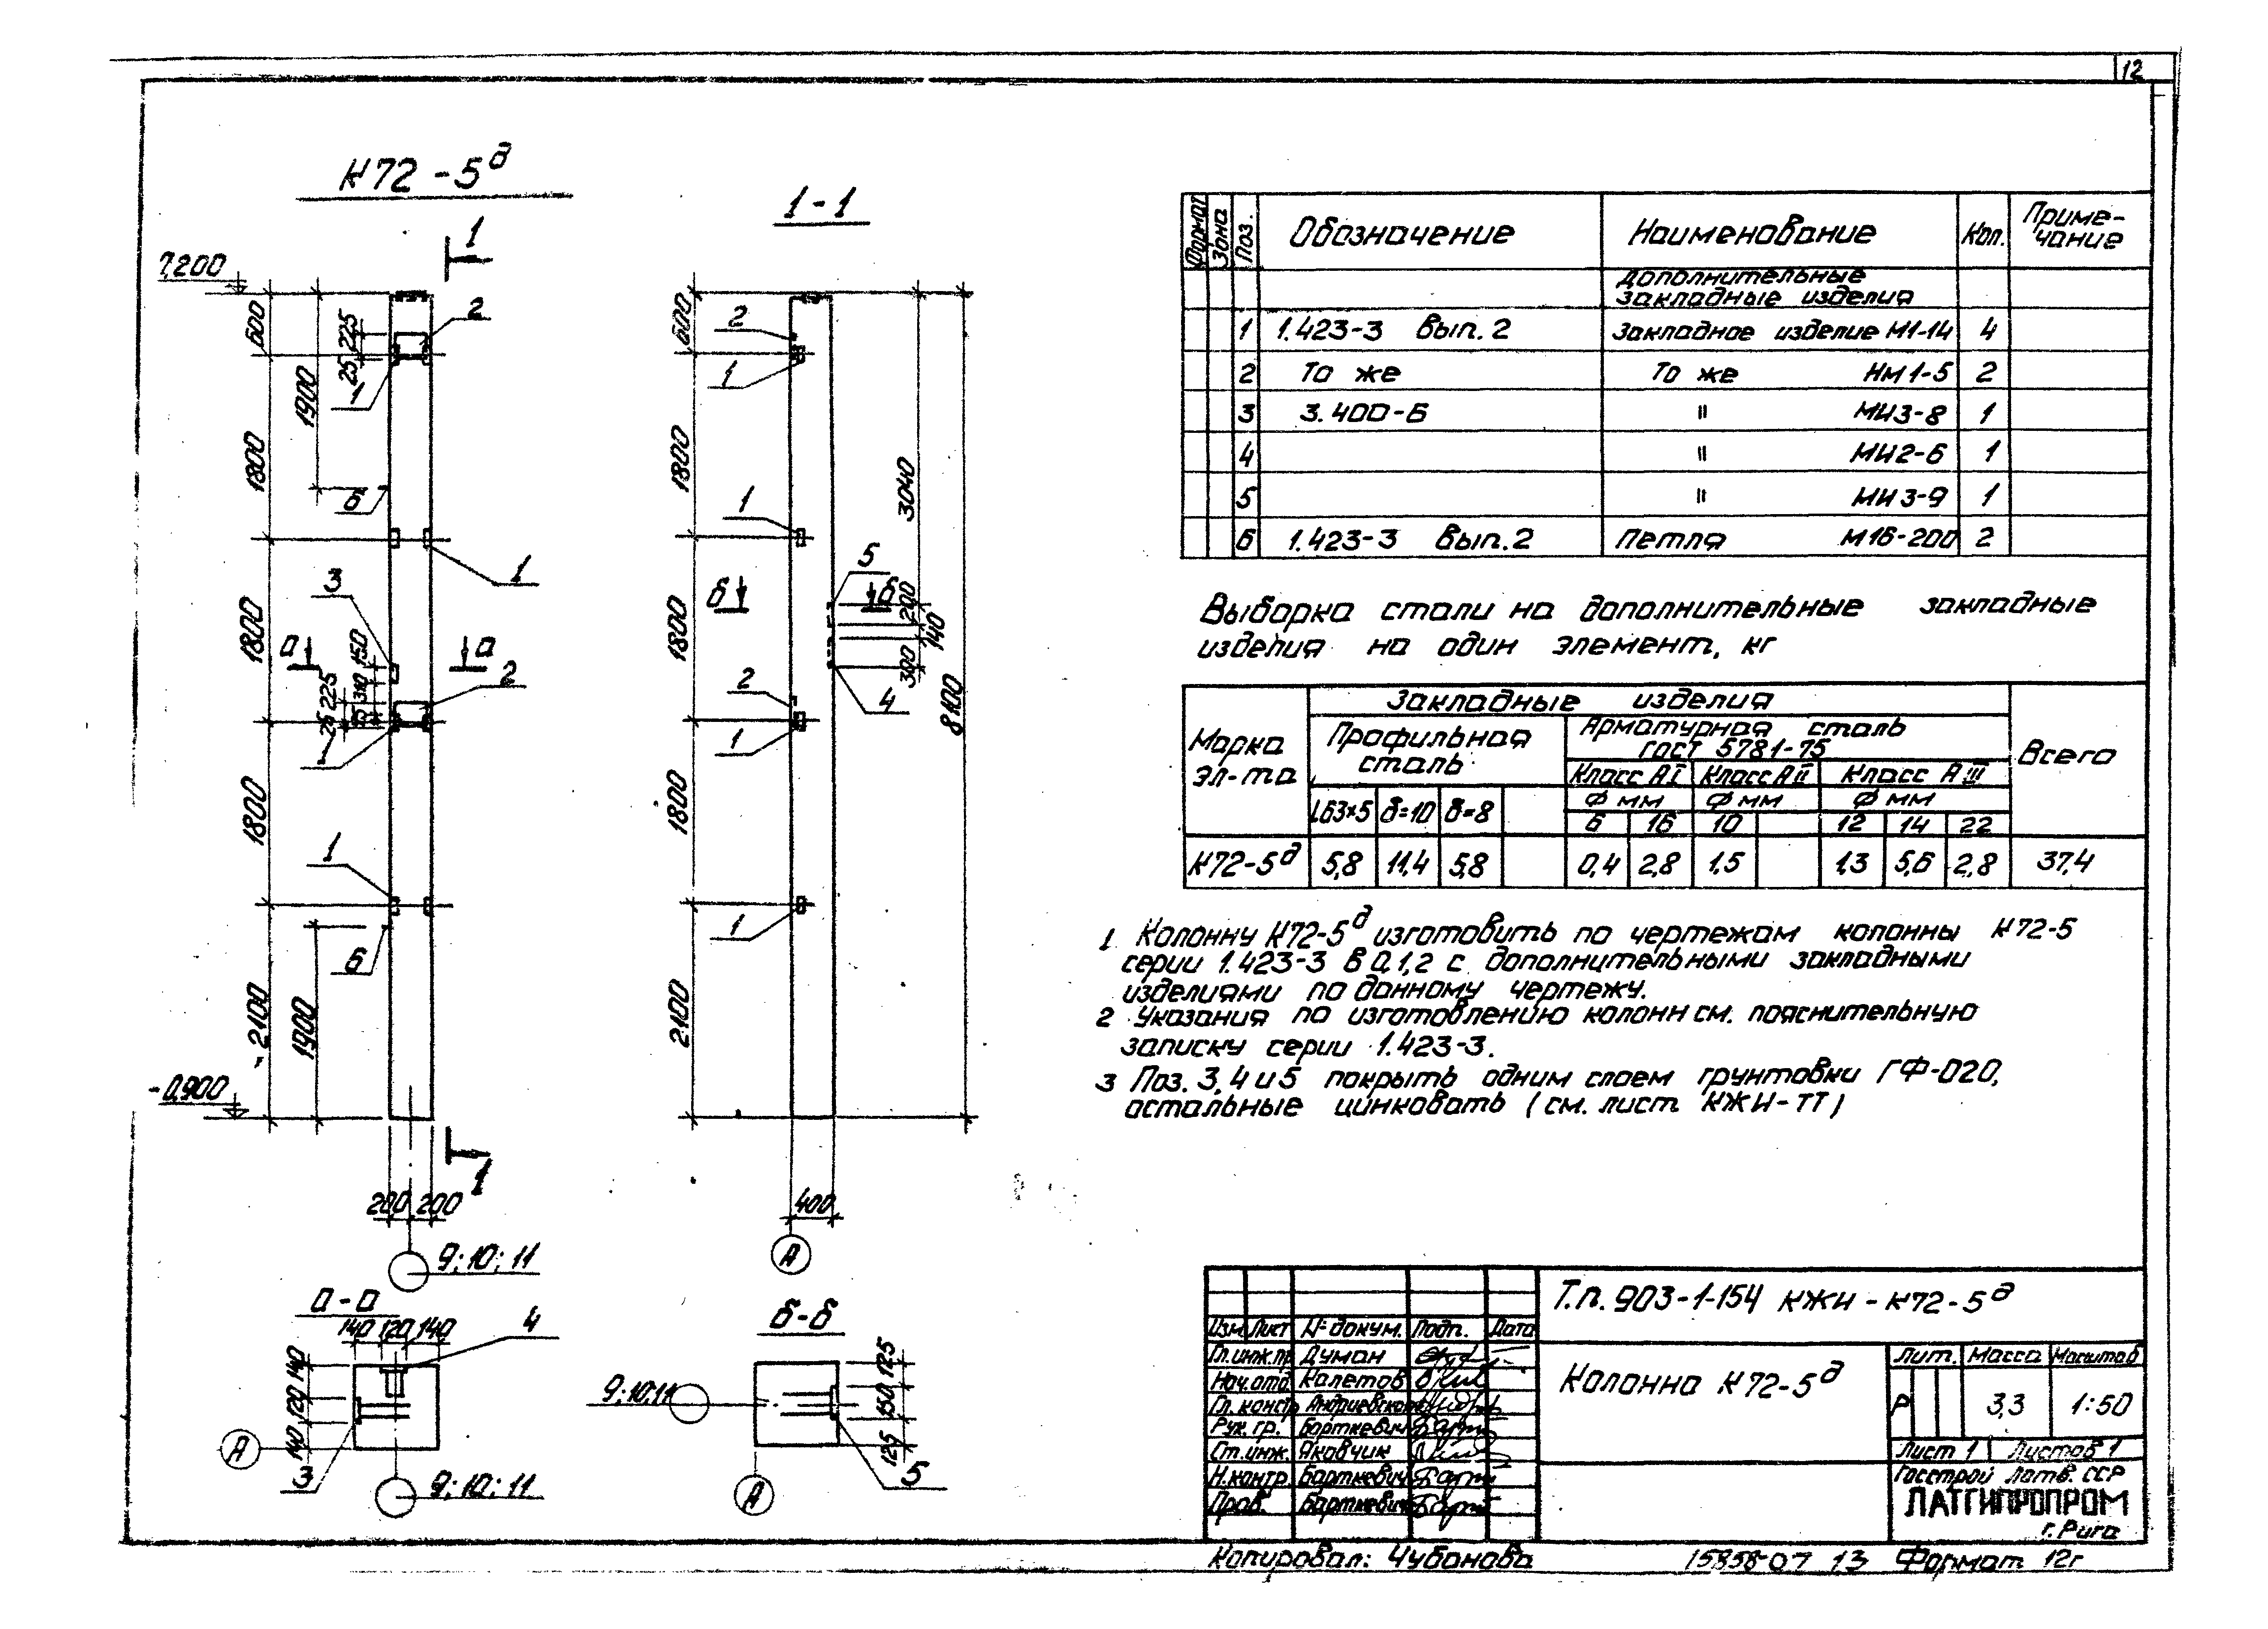 12
К72-5д
1
7,200
600
225
25
2
1
1900
1800
6
1
3
1800
а
а
150
310
25
225
25
2
1
1800
1
6
2100
1900
-0,900
1
200 200
9; 10; 11
1-1
600
2
1
1800
1
3040
5
б
б
200
140
300
4
1800
2
1
8100
1800
1
2100
400
А
а-а
140 120 140
4
140
120
140
А
3
9; 10; 11
б-б
9; 10; 11
125
150
125
5
А
Формат Зона Поз. Обозначение Наименование Кол. Приме-
чание
Дополнительные
закладные изделия
1 1.423-3 Вып. 2 Закладное изделие М1-14 4
2 То же То же НМ1-5 2
3 3.400-6 " МИ3-8 1
4 " МИ2-6 1
5 " МИ3-9 1
6 1.423-3 Вып. 2 Петля М16-200 2
Выборка стали на дополнительные закладные
изделия на один элемент, кг
Марка
эл-та
Закладные изделия
Профильная
сталь
Арматурная сталь
ГОСТ 5781-75
Всего
Класс АI Класс АII Класс АIII
L63×5 δ=10 δ=8
Ф мм Ф мм Ф мм
6 16 10 12 14 22
К72-5д 5,8 11,4 5,8 0,4 2,8 1,5 1,3 5,6 2,8 37,4
1 Колонну К72-5д изготовить по чертежам колонны К72-5
серии 1.423-3 в 0,1,2 с дополнительными закладными
изделиями по данному чертежу.
2 Указания по изготовлению колонн см. пояснительную
записку серии 1.423-3.
3 Поз. 3, 4 и 5 покрыть одним слоем грунтовки ГФ-020,
остальные цинковать (см. лист КЖИ-ТТ)
Т.п. 903-1-154 КЖИ-К72-5д
Изм Лист № докум. Подп. Дата
Гл.инж.пр Думан
Нач.отд. Колетов
Гл. констр
Рук. гр. Барткевич
Ст.инж. Яковчик
Н.контр. Барткевич
Пров. Барткевич
Колонна К72-5д
Лит. Масса Масштаб
Р 3,3 1:50
Лист 1 Листов 1
Госстрой Латв. ССР
ЛАТГИПРОПРОМ
г. Рига
Копировал: Чубанова 15858-07 13 Формат 12г